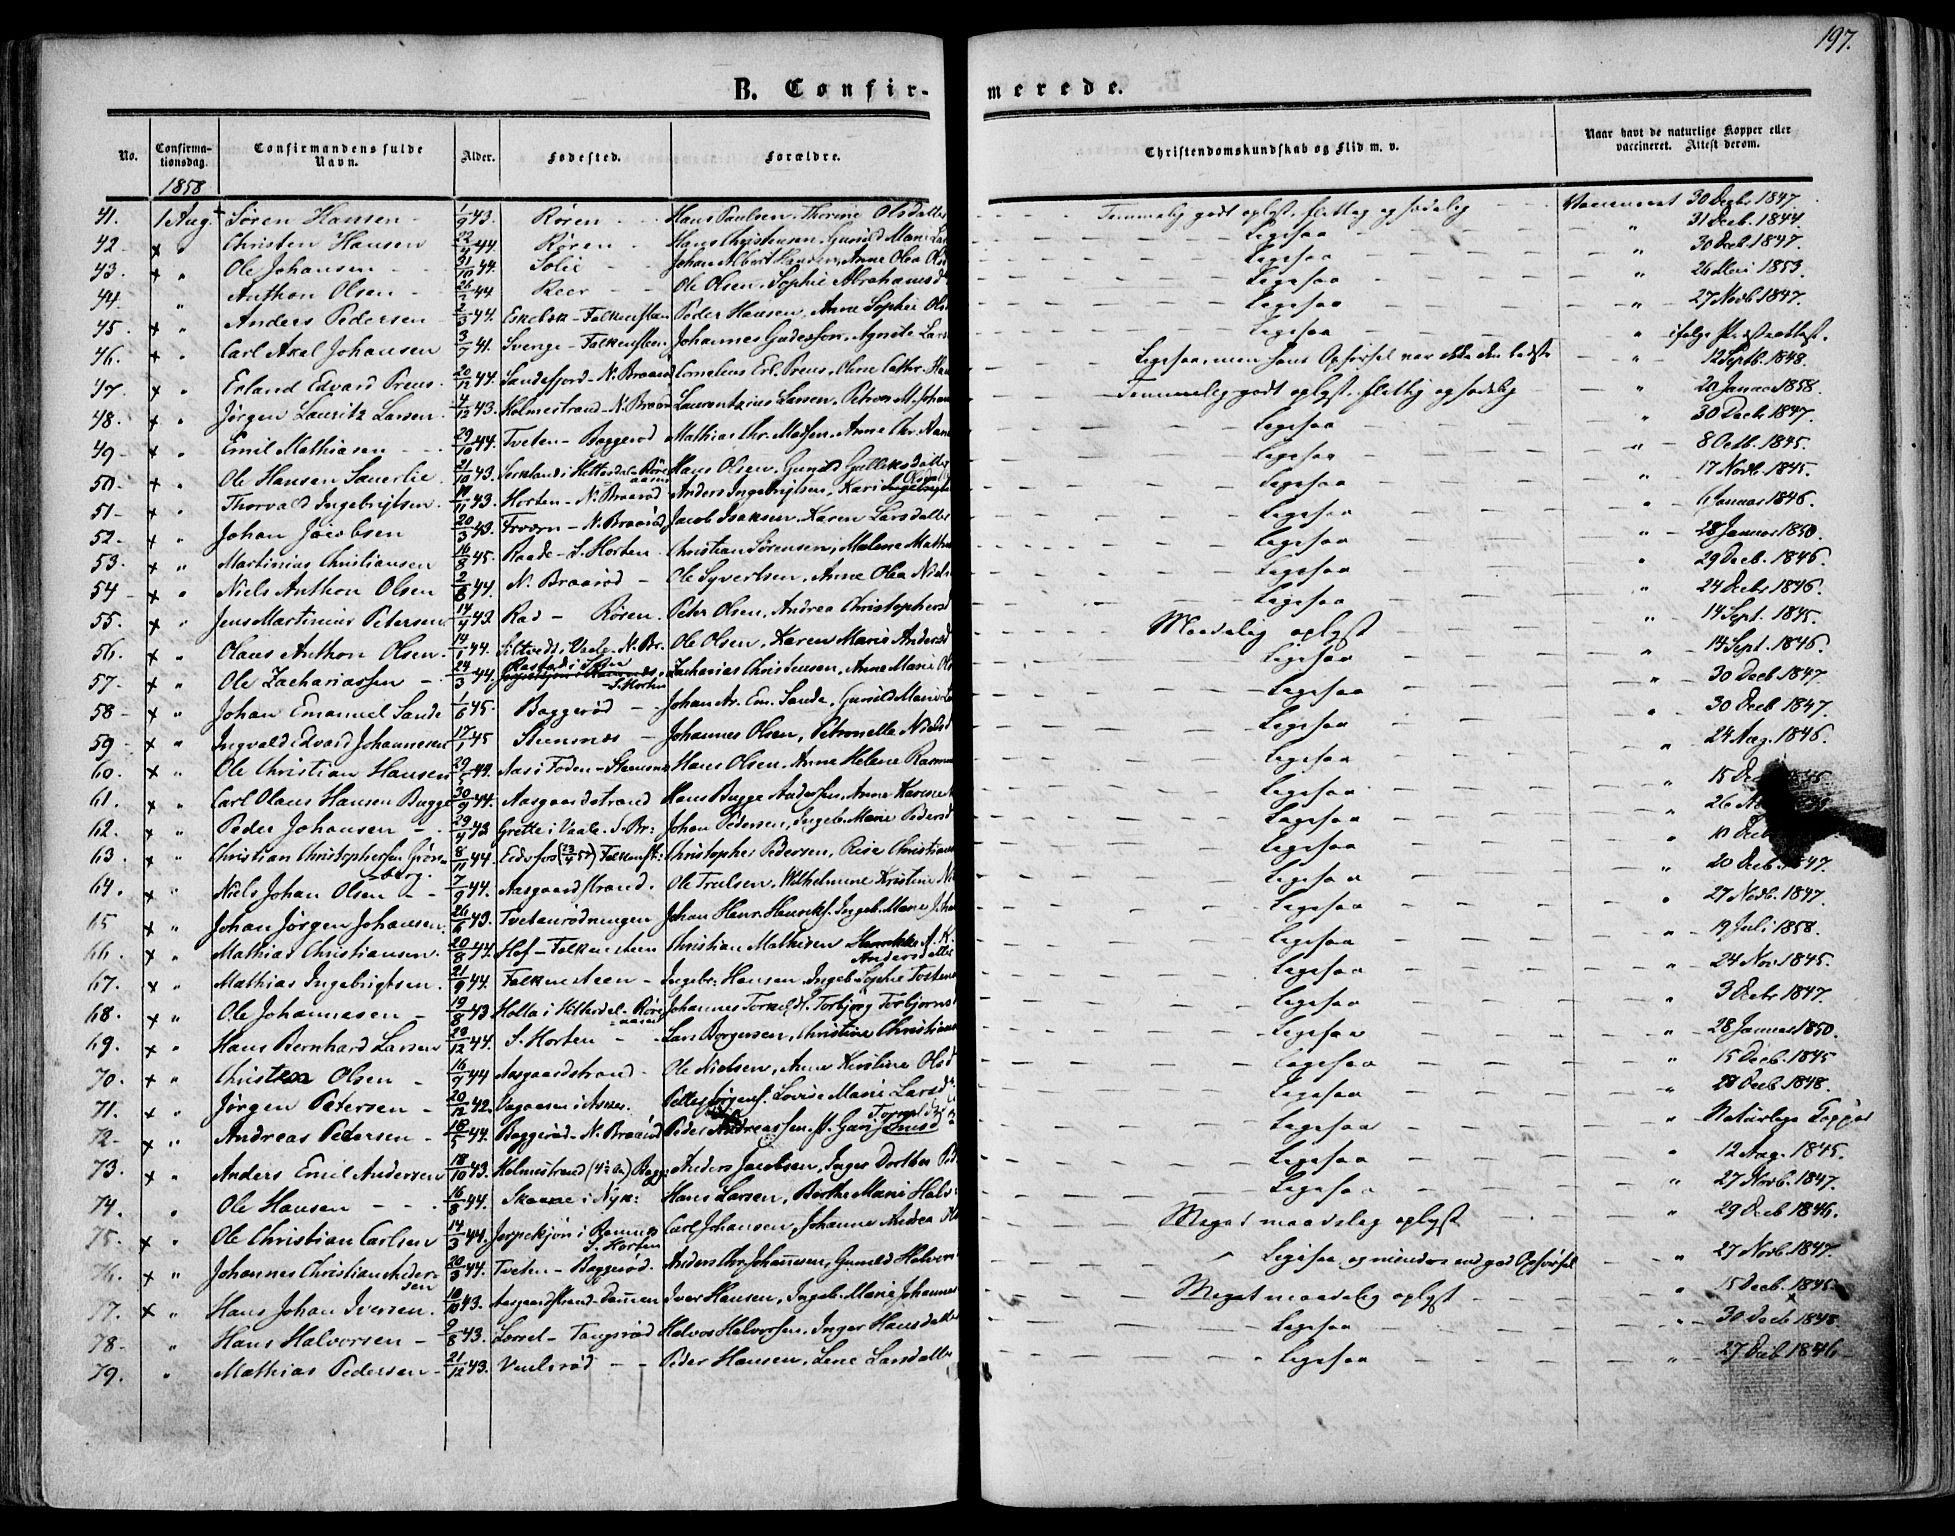 197.
B. Confirmerede.
No. Confirmationsdag. Confirmandens fulde Navn. Alder. Fødested. Forældre. Christendomskundskab og Flid m. v. Naar havt de naturlige Kopper eller vaccineret. Attest derom.
1858
41. 1 Aug. Søren Hansen 1/9 43. Røren Hans Paulsen, Thorine Olsdatter Temmelig godt oplyst, flittig og sædelig Vaccineret 30 Decb. 1847.
42 - x " Christen Hansen 22/4 44 Røren Hans Christensen, Gunild Marie Ligesaa " 31 Decb. 1844.
43. x " Ole Johansen 31/10 44. Solie Johan Albert Anne Olea Ligesaa " 30 Decb. 1847.
44 - " Anthon Olsen 26/2 44 Reer Ole Olsen, Sophie Abrahamsd Ligesaa " 26 Mai 1853.
45. x " Anders Pedersen 2/3 44. Eskebæk - Falkensten Peder Hansen, Anne Sophie Ols Ligesaa " 27 Novb. 1847.
46. x " Carl Axel Johansen 3/7 41. Sverige - Falkensteen Johannes Agnete Lars Ligesaa " ifølge Præsteattest.
47. x " Erland Edvard Preus. 20/12 44. Sandefjord - N. Braarød Cornelius Erl. Preus, Oline Cathr. Ligesaa, men hans Opførsel var ikke den bedste " 12 Septb. 1848.
48. x " Jørgen Lauritz Larsen 4/12 43. Holmestrand - N. Braarød Laurentzius Larsen, Petrea M. Johan Temmelig godt oplyst, flittig og sædelig " 20 Januar 1858.
49 - x " Emil Mathiasen 29/10 44. Tveten - Baggerød Mathias Chr. Madsen, Anne Chr. Ligesaa " 30 Decb. 1847.
50 - x " Ole Hansen Sauerlie 21/10 43. i Hitterdal - Røren Hans Olsen, Gunild Gulliksdatter Ligesaa " 8 Octb. 1845.
51 - x " Thorvald Ingebrigtsen. 43. Horten - N. Braarød Anders Ingebrigtsen, Kari Olsd Ligesaa " 17 Novb. 1845.
52. x " Johan Jacobsen 20/3 43. - N. Braarød Jacob Isaksen, Karen Larsdatter Ligesaa " 6 Januar 1846.
53. x " Martinius Christiansen 16/8 45. Raade - S. Horten Christian Sørensen, Malene Ligesaa " 28 Januar 1850.
54 - x " Niels Anthon Olsen 44. N. Braarød Ole Syvertsen, Anne Olea Niels Ligesaa " 29 Decb. 1846.
55. x " Jens Martinius Petersen 14/4 43. Rad - Røren. Peter Olsen, Andrea Christophersd Ligesaa " 24 Decbr 1846.
56. x " Olaus Anthon Olsen. 14/1 44. i Vaale - N. Br. Ole Olsen, Karen Marie Andersd Maadelig oplyst " 14 Sept. 1845.
57. x " Ole Zachariassen 24/3 44. S. Horten Zacharias Christensen, Anne Marie Ligesaa " 14 Sept. 1846.
58 - x " Johan Emanuel Sande 1/6 45. Baggerød Johan Ar. Em. Sande, Gunild Marie Ligesaa " 30 Decb 1847
59 - x " Ingvald Edvard Johannesen 17/1 45 Steensnæs Johannes Olsen, Petronelle Nielsd Ligesaa " 30 Decb 1847.
60. x " Ole Christian Hansen 29/5 44. Aas i Foden - Steensnæs Hans Olsen, Anne Helene Rasmus Ligesaa " 24 Aug. 1846.
61. x " Carl Olaus Hansen Bugge 30/9 44. Aasgaardstrand Hans Bugge Andersen, Anne Karine Ligesaa " 15
62. x " Peder Johansen 29/4 43 Grette i Vaale - S. Br: Johan Pedersen, Ingeb. Marie Pedersd Ligesaa " 26
63. x " Christian Christophersen Grønneberg. 8/11 44. Eidsfos (23/4 57) Falkenst: Christopher Pedersen, Rise Christians Ligesaa " 10 Decb
64. x " Niels Johan Olsen 7/9 44. Aasgaardstrand. Ole Trulsen, Wilhelmine Kristine Ligesaa " 20 Decb. 1847.
65 x " Johan Jørgen Johansen. 26/6 43. Tvetenrødningen Johan Henr. Henriks. Ingeb. Marie Ligesaa " 27 Novb. 1847.
66. x " Mathias Christiansen. 20/8 44. Hof - Falkensteen Christian Mathisen A. K. Andersdatter Ligesaa " 19 Juli 1858.
67. x " Mathias Ingebrigtsen. 21/9 44. Falkensteen Ingebr: Hansen, Ingeb. Sophie Ligesaa " 24 Nov. 1845.
68. x " Ole Johannesen 19/8 43 Holla i Hitterdal - Røren Johannes Torkelds. Torbjørg Torbjørns Ligesaa " 3 Decbr 1847.
69. x " Hans Bernhard Larsen 29/12 44. S. Horten Lars Børgersen, Christine Christians Ligesaa " 28 Januar 1850.
70. x " Christen Olsen 16/9 44 Aasgaardstrand Ole Nielsen, Anne Kirstine Olsd Ligesaa " 15 Decb. 1845
71. x " Jørgen Petersen 20/12 42. i Asker. Lovise Marie Larsd Ligesaa " 28 Decb. 1848.
72 - x " Andreas Pedersen 18/5 44. Baggerød - N. Braarød Peder Andreassen Ligesaa " Naturlige Kopper
73. x " Anders Emil Andersen 18/10 43. Holmestrand Bagg: Anders Jacobsen, Inger Dorthea Ped Ligesaa " 12 Aug. 1845.
74. " Ole Hansen 16/8 44. Skaane i Nyk: Hans Larsen, Berthe Marie Halv Ligesaa " 27 Novb. 1847.
75. x " Ole Christian Carlsen 14/3 44. i Ramnes S. Horten Carl Johansen, Johanne Andrea Meget maadelig oplyst " 29 Decb 1846.
76. x " Johannes Christian Andersen 20/3 44. Tveten - Baggerød. Anders Chr. Johannesen, Gunild Halvors Ligesaa og mindre end god Opførsel " 27 Novb. 1847.
77. x " Hans Johan Iversen. 10/10 43. Aasgaardstrand - Dammen Iver Hansen, Ingeb. Marie Johannes Meget maadelig oplyst " 15 Decb. 1845.
78. " Hans Halvorsen 9/8 43. - Tangsrød Halvor Halvorsen, Inger Hansdatter Ligesaa " 30 Decb 1848.
79. " Mathias Pedersen 21/12 43. Peder Hansen, Lene Larsdatter Ligesaa " 27 Decb. 1846